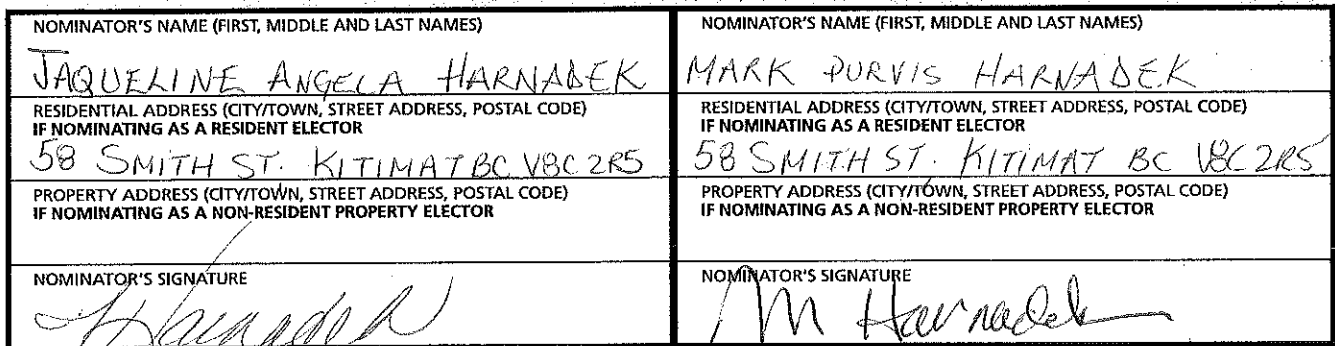 NOMINATOR'S NAME (FIRST, MIDDLE AND LAST NAMES)
JAQUELINE ANGELA HARNADEK
RESIDENTIAL ADDRESS (CITY/TOWN, STREET ADDRESS, POSTAL CODE)
IF NOMINATING AS A RESIDENT ELECTOR
58 SMITH ST. KITIMAT BC V8C 2R5
PROPERTY ADDRESS (CITY/TOWN, STREET ADDRESS, POSTAL CODE)
IF NOMINATING AS A NON-RESIDENT PROPERTY ELECTOR
NOMINATOR'S SIGNATURE
Harnadek
NOMINATOR'S NAME (FIRST, MIDDLE AND LAST NAMES)
MARK PURVIS HARNADEK
RESIDENTIAL ADDRESS (CITY/TOWN, STREET ADDRESS, POSTAL CODE)
IF NOMINATING AS A RESIDENT ELECTOR
58 SMITH ST. KITIMAT BC V8C 2R5
PROPERTY ADDRESS (CITY/TOWN, STREET ADDRESS, POSTAL CODE)
IF NOMINATING AS A NON-RESIDENT PROPERTY ELECTOR
NOMINATOR'S SIGNATURE
M Harnadek